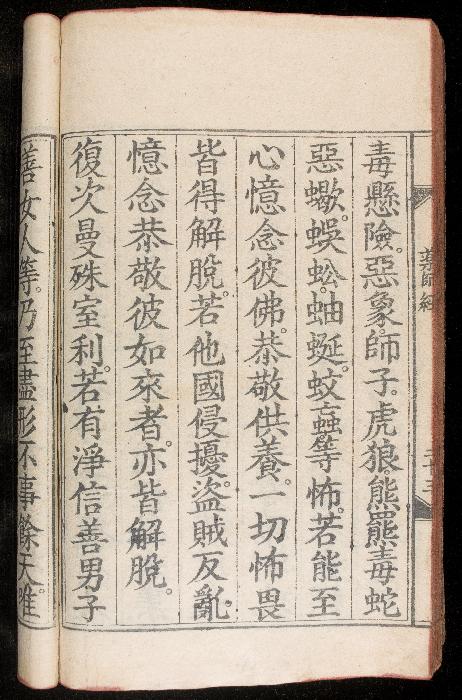 藥師經
二十三
毒懸險。惡象。師子。虎狼。熊羆。毒蛇
惡蠍。蜈蚣。蚰蜒。蚊䖟等怖。若能至
心憶念彼佛。恭敬供養。一切怖畏
皆得解脫。若他國侵擾。盜賊反亂。
憶念恭敬彼如來者。亦皆解脫。
復次曼殊室利。若有淨信善男子
善女人等。乃至盡形不事餘天。唯